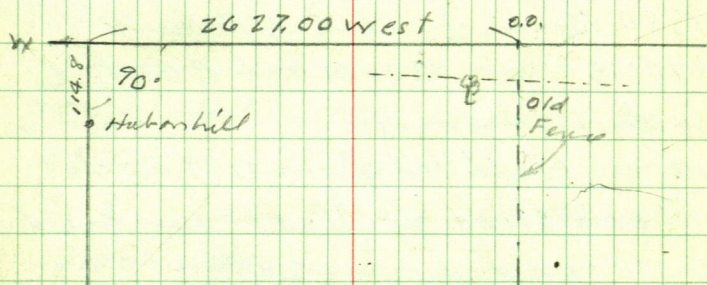 2627.00 West 0.0.
W
114.8
90°
Hub on hill
℄
Old
Fence